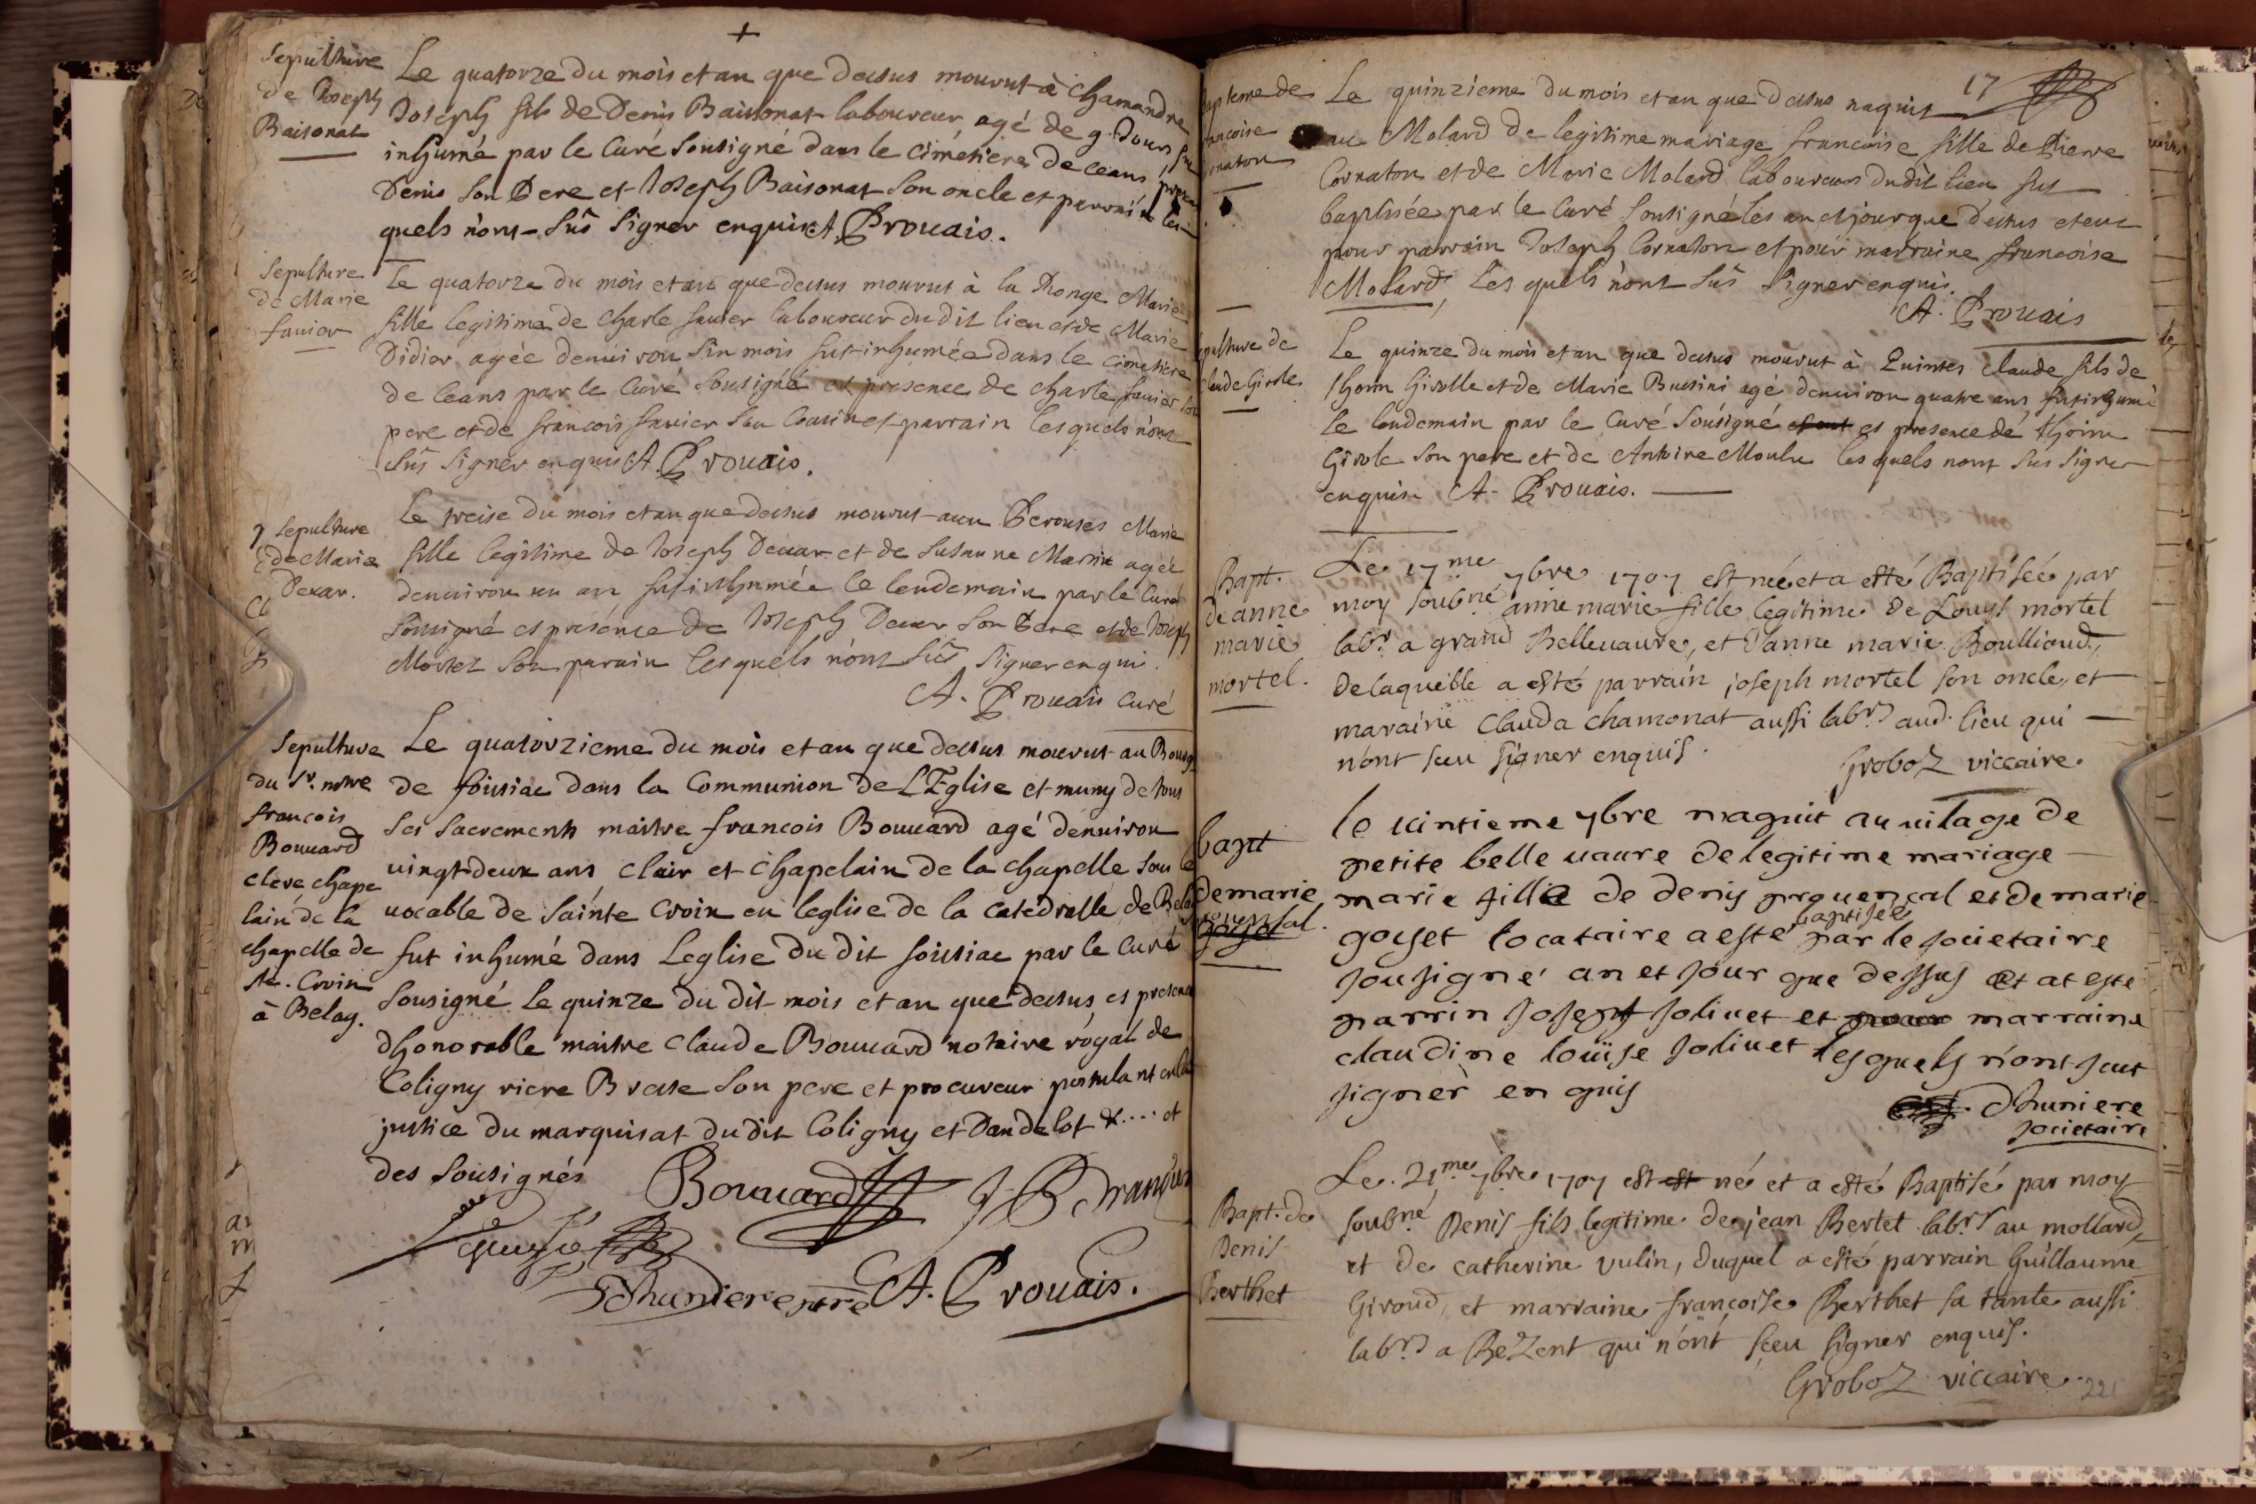 +
Sepulture
de Joseph
Baisonat
Le quatorze du mois et an que dessus mourut à chamandre
Joseph fils de Denis Baisonat laboureur, agé de 9 Jours fut
inhumé par le Curé sousigné dans le Cimetiere de ceans,
Denis son Pere et Joseph Baisonat son oncle et parrain les
quels n'ont sus signer enquis A. Prouais.
Sepulture
de Marie
favier
Le quatorze du mois et an que dessus mourut à la Ronge Marie
fille legitime de Charle favier laboureur du dit lieu et de Marie
Didier agée denuiron sin mois fut inhumée dans le cimetiere
de ceans par le Curé sousigné es presence de Charle favier son
pere et de francois favier son Cousin et parrain lesquels n'ont
sus signer enquis A. Prouais.
Sepulture
de Marie
Deuar.
Le treise du mois et an que dessus mourut aux Perouses Marie
fille legitime de Joseph Deuar et de Susanne Marin agée
denuiron un an fut inhumée le lendemain par le Curé
sousigné es presence de Joseph Deuar son Pere et de Joseph
Mortet son parain lesquels n'ont sus signer enquis.
A. Prouais Curé
Sepulture
du Sr. notre
francois
Bouuard
clere chape
lain de la
chapelle de
Ste. Croix
à Belay.
Le quatorzieme du mois et an que dessus mourut au Bourg
de foisiac dans la Communion de L'Eglise et muny de tous
ses sacrements maitre francois Bouuard agé denuiron
uingt deux ans clair et Chapelain de la chapelle sous le
uocable de sainte Croix en leglise de la catedralle de Belay
fut inhumé dans Leglise du dit foisiac par le Curé
sousigné le quinze du dit mois et an que dessus, es presence
dhonorable maitre Claude Bouuard notaire royal de
Coligny riere Bresse son pere et procureur postulant en la
justice du marquisat du dit Coligny et Dandelot &... et
des sousignés
Bouuard
Dhuniere ptre A. Prouais.
17
Le quinzieme du mois et an que dessus naquit
au Molard de legitime mariage francoise fille de Pierre
Cornaton et de Marie Molard laboureurs du dit lieu fut
baptisée par le Curé sousigné les an et jour que dessus et eut
pour parrain Joseph Cornaton et pour marraine francoise
Molard, les quels n'ont sus signer enquis.
A. Prouais
Le quinze du mois et an que dessus mourut à Euintes Claude fils de
Thoin Girolle et de Marie Bussini agé denuiron quatre ans fut inhumé
le lendemain par le Curé sousigné es presence de Thoin
Girole son pere et de Antoine Moulu lesquels nont sus signer
enquis A. Prouais.
Bapt.
de anne
marie
mortel.
Le 17me 7bre 1707 est née et a esté Baptisée par
moy soubné anne marie fille legitime de Louys mortel
labr. a grand Belleuaure, et d'anne marie Boullioud,
de laquelle a esté parrain joseph mortel son oncle, et
maraine Clauda chamonat aussi labrs aud. lieu qui
n'ont sceu signer enquis.
Groboz viccaire.
bapt
de marie
prouensal.
le uintieme 7bre naquit au uilage de
petite belle uaure de legitime mariage
marie fille de denis prouencal et de marie
goyset locataire a esté baptisée par le societaire
sousigné an et jour que dessus et at esté
parrin joseph joliuet et marraine
claudine louïse joliuet lesquels n'ont sceut
signer enquis
Dhuniere
societaire
Bapt. de
Denis
Berthet
Le 21me 7bre 1707 est est né et a esté Baptisé par moy
soubné Denis fils legitime de jean Bertet labrs au mollard,
et de catherine vulin, duquel a esté parrain Guillaume
Giroud, et marraine françoise Berthet sa tante aussi
labrs a Bezent qui n'ont sceu signer enquis.
Groboz viccaire.
221